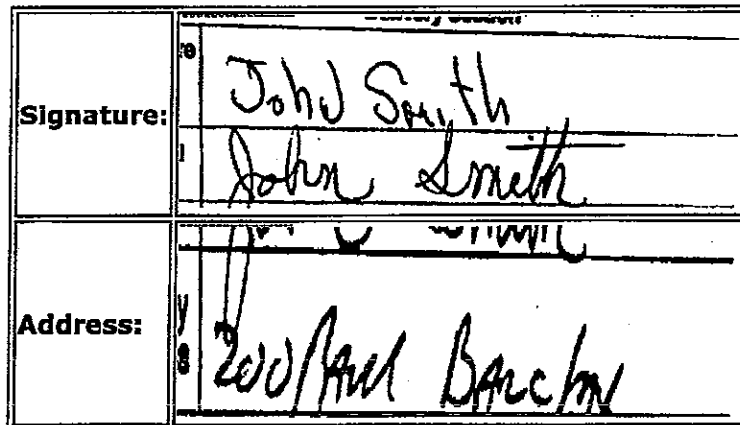 Signature:
John Smith
John Smith
Address:
200 Paul